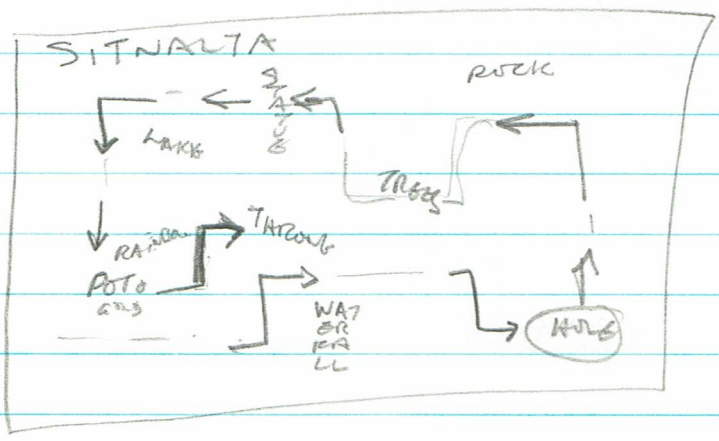 SITNALTA
ROCK
STATUE
LAKE
TREES
RAINBOW
THRONE
POTO
WAT
ER
FA
LL
HOLE